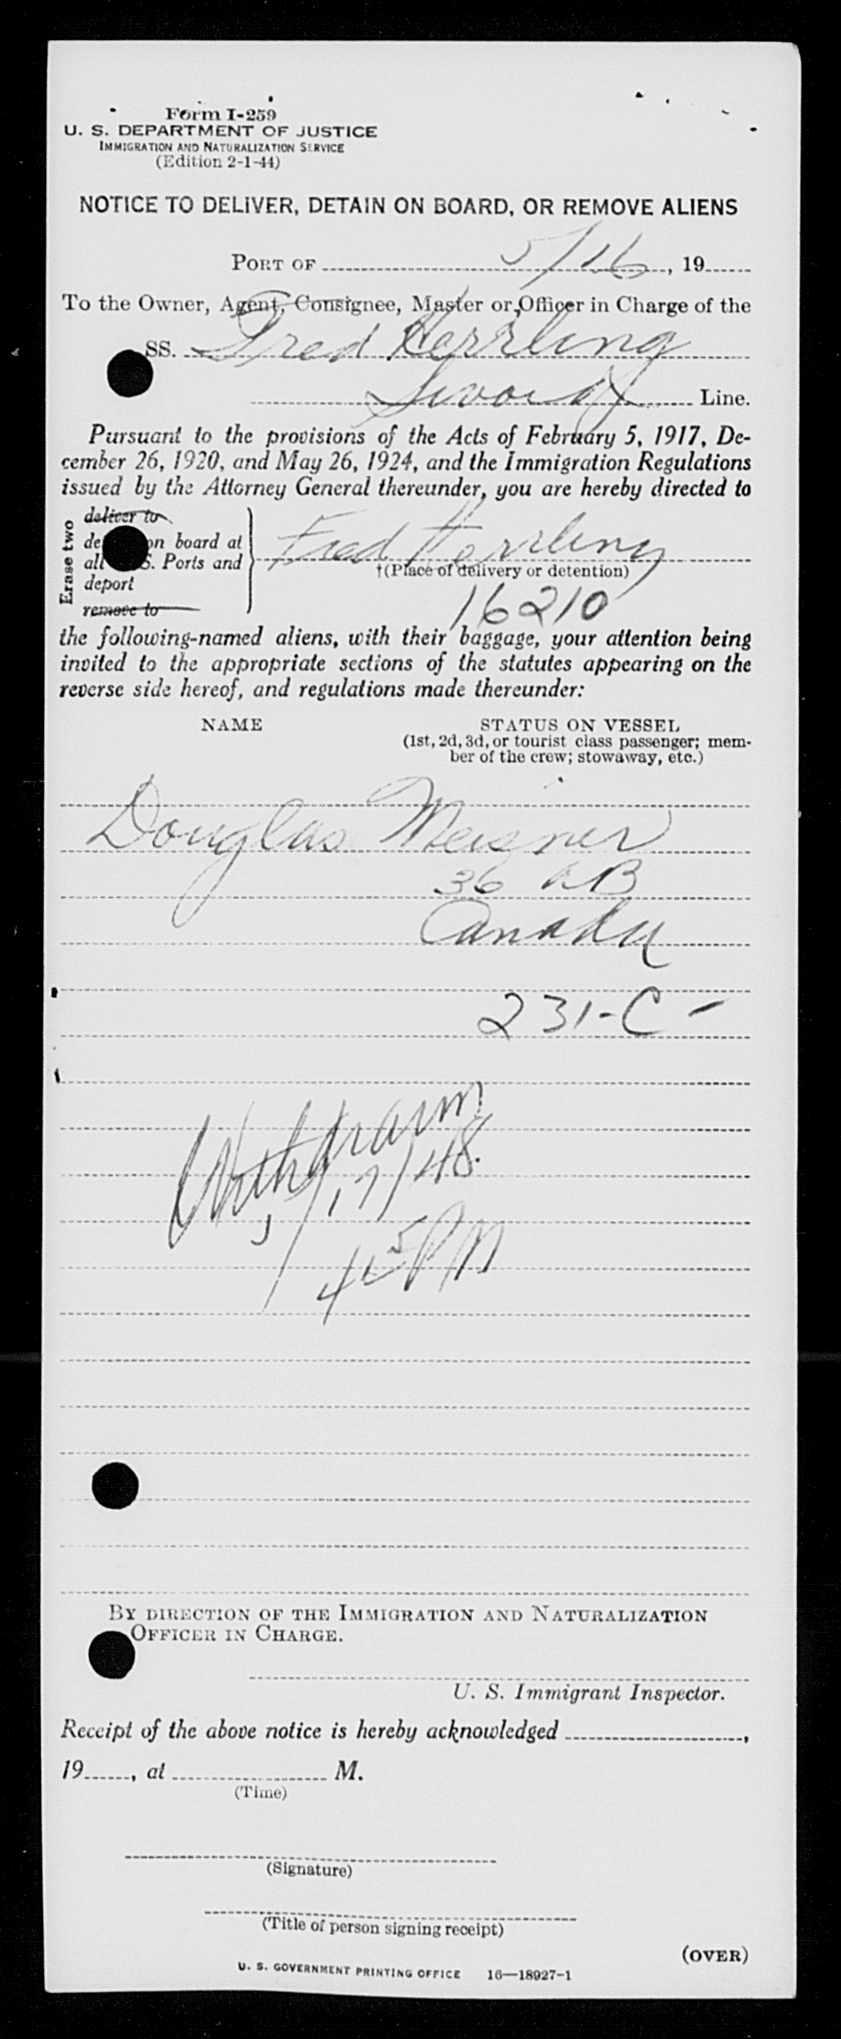 Form I-259
U. S. DEPARTMENT OF JUSTICE
IMMIGRATION AND NATURALIZATION SERVICE
(Edition 2-1-44)
NOTICE TO DELIVER, DETAIN ON BOARD, OR REMOVE ALIENS
PORT OF 5/16, 19
To the Owner, Agent, Consignee, Master or Officer in Charge of the
SS. Fred Herrling
Sword Line.
Pursuant to the provisions of the Acts of February 5, 1917, De-
cember 26, 1920, and May 26, 1924, and the Immigration Regulations
issued by the Attorney General thereunder, you are hereby directed to
Erase two
deliver to
on board at
all S. Ports and
deport
remove to
Fred Herrling
†(Place of delivery or detention)
16210
the following-named aliens, with their baggage, your attention being
invited to the appropriate sections of the statutes appearing on the
reverse side hereof, and regulations made thereunder:
NAME STATUS ON VESSEL
(1st, 2d, 3d, or tourist class passenger; mem-
ber of the crew; stowaway, etc.)
Douglas Meisner
36 AB
Canada
231-C -
Withdrawn
5/17/48.
4 15 PM
BY DIRECTION OF THE IMMIGRATION AND NATURALIZATION
OFFICER IN CHARGE.
U. S. Immigrant Inspector.
Receipt of the above notice is hereby acknowledged ,
19 , at M.
(Time)
(Signature)
(Title of person signing receipt)
(OVER)
U. S. GOVERNMENT PRINTING OFFICE 16—18927-1